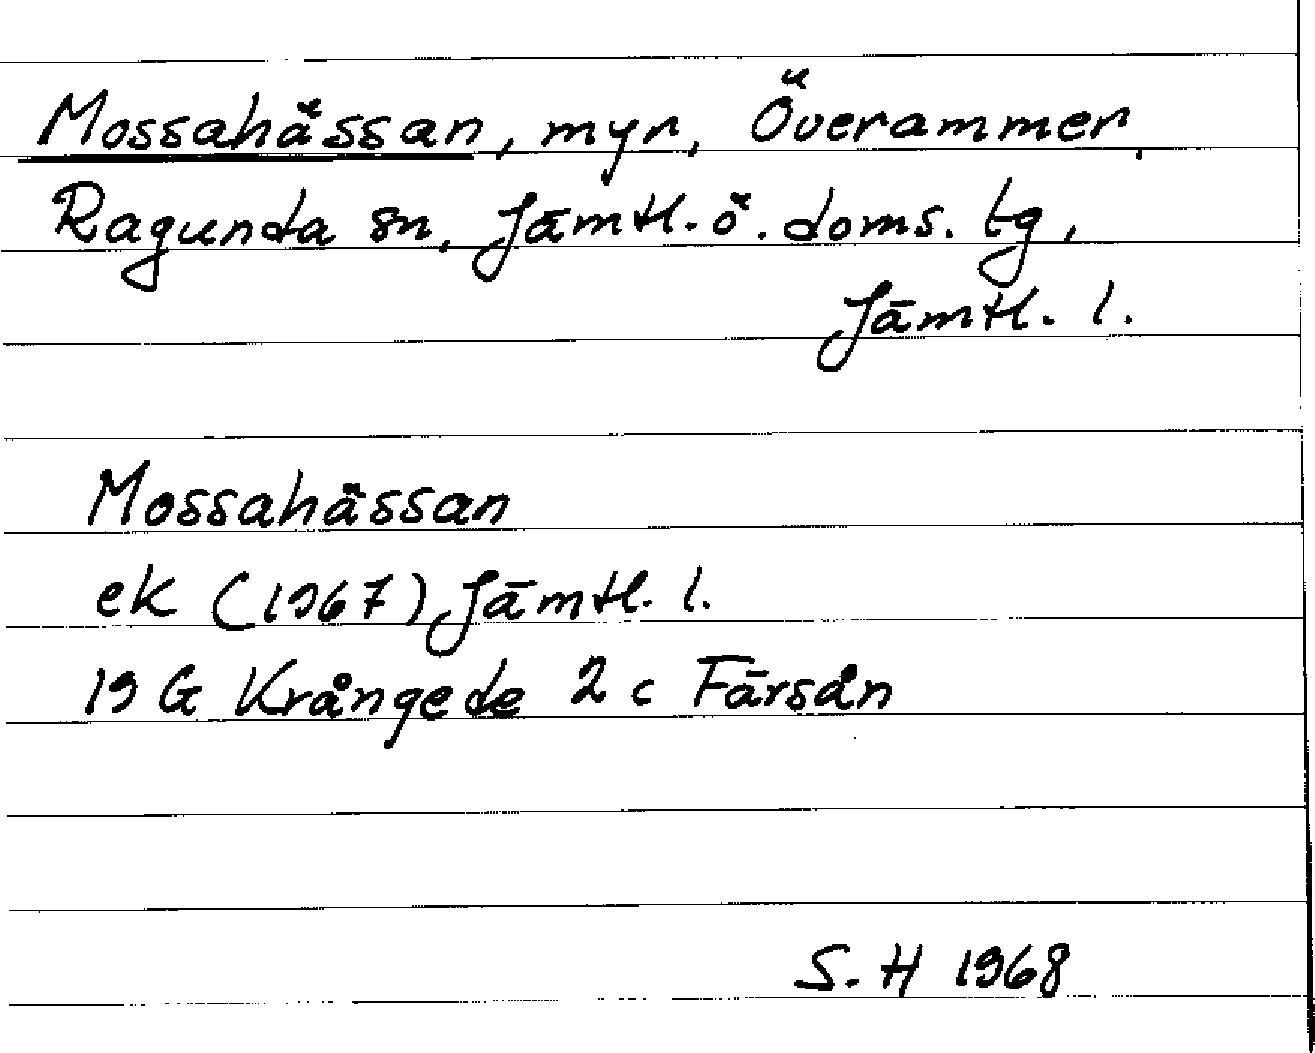 Mossahässan, myr, Överammer,
Ragunda sn, Jämtl. ö. doms. tg,
Jämtl. l.
Mossahässan
ek (1967) Jämtl. l.
19 G Krångede 2 c Färsån
S. H 1968